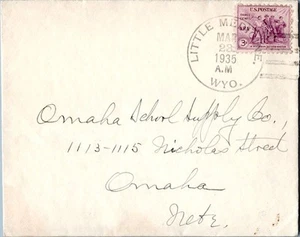 U.S. POSTAGE
3
LITTLE ME
MAR
22
1935
A.M
WYO.
Omaha School Supply Co.,
1113-1115 Nicholas Street
Omaha
Nebr.